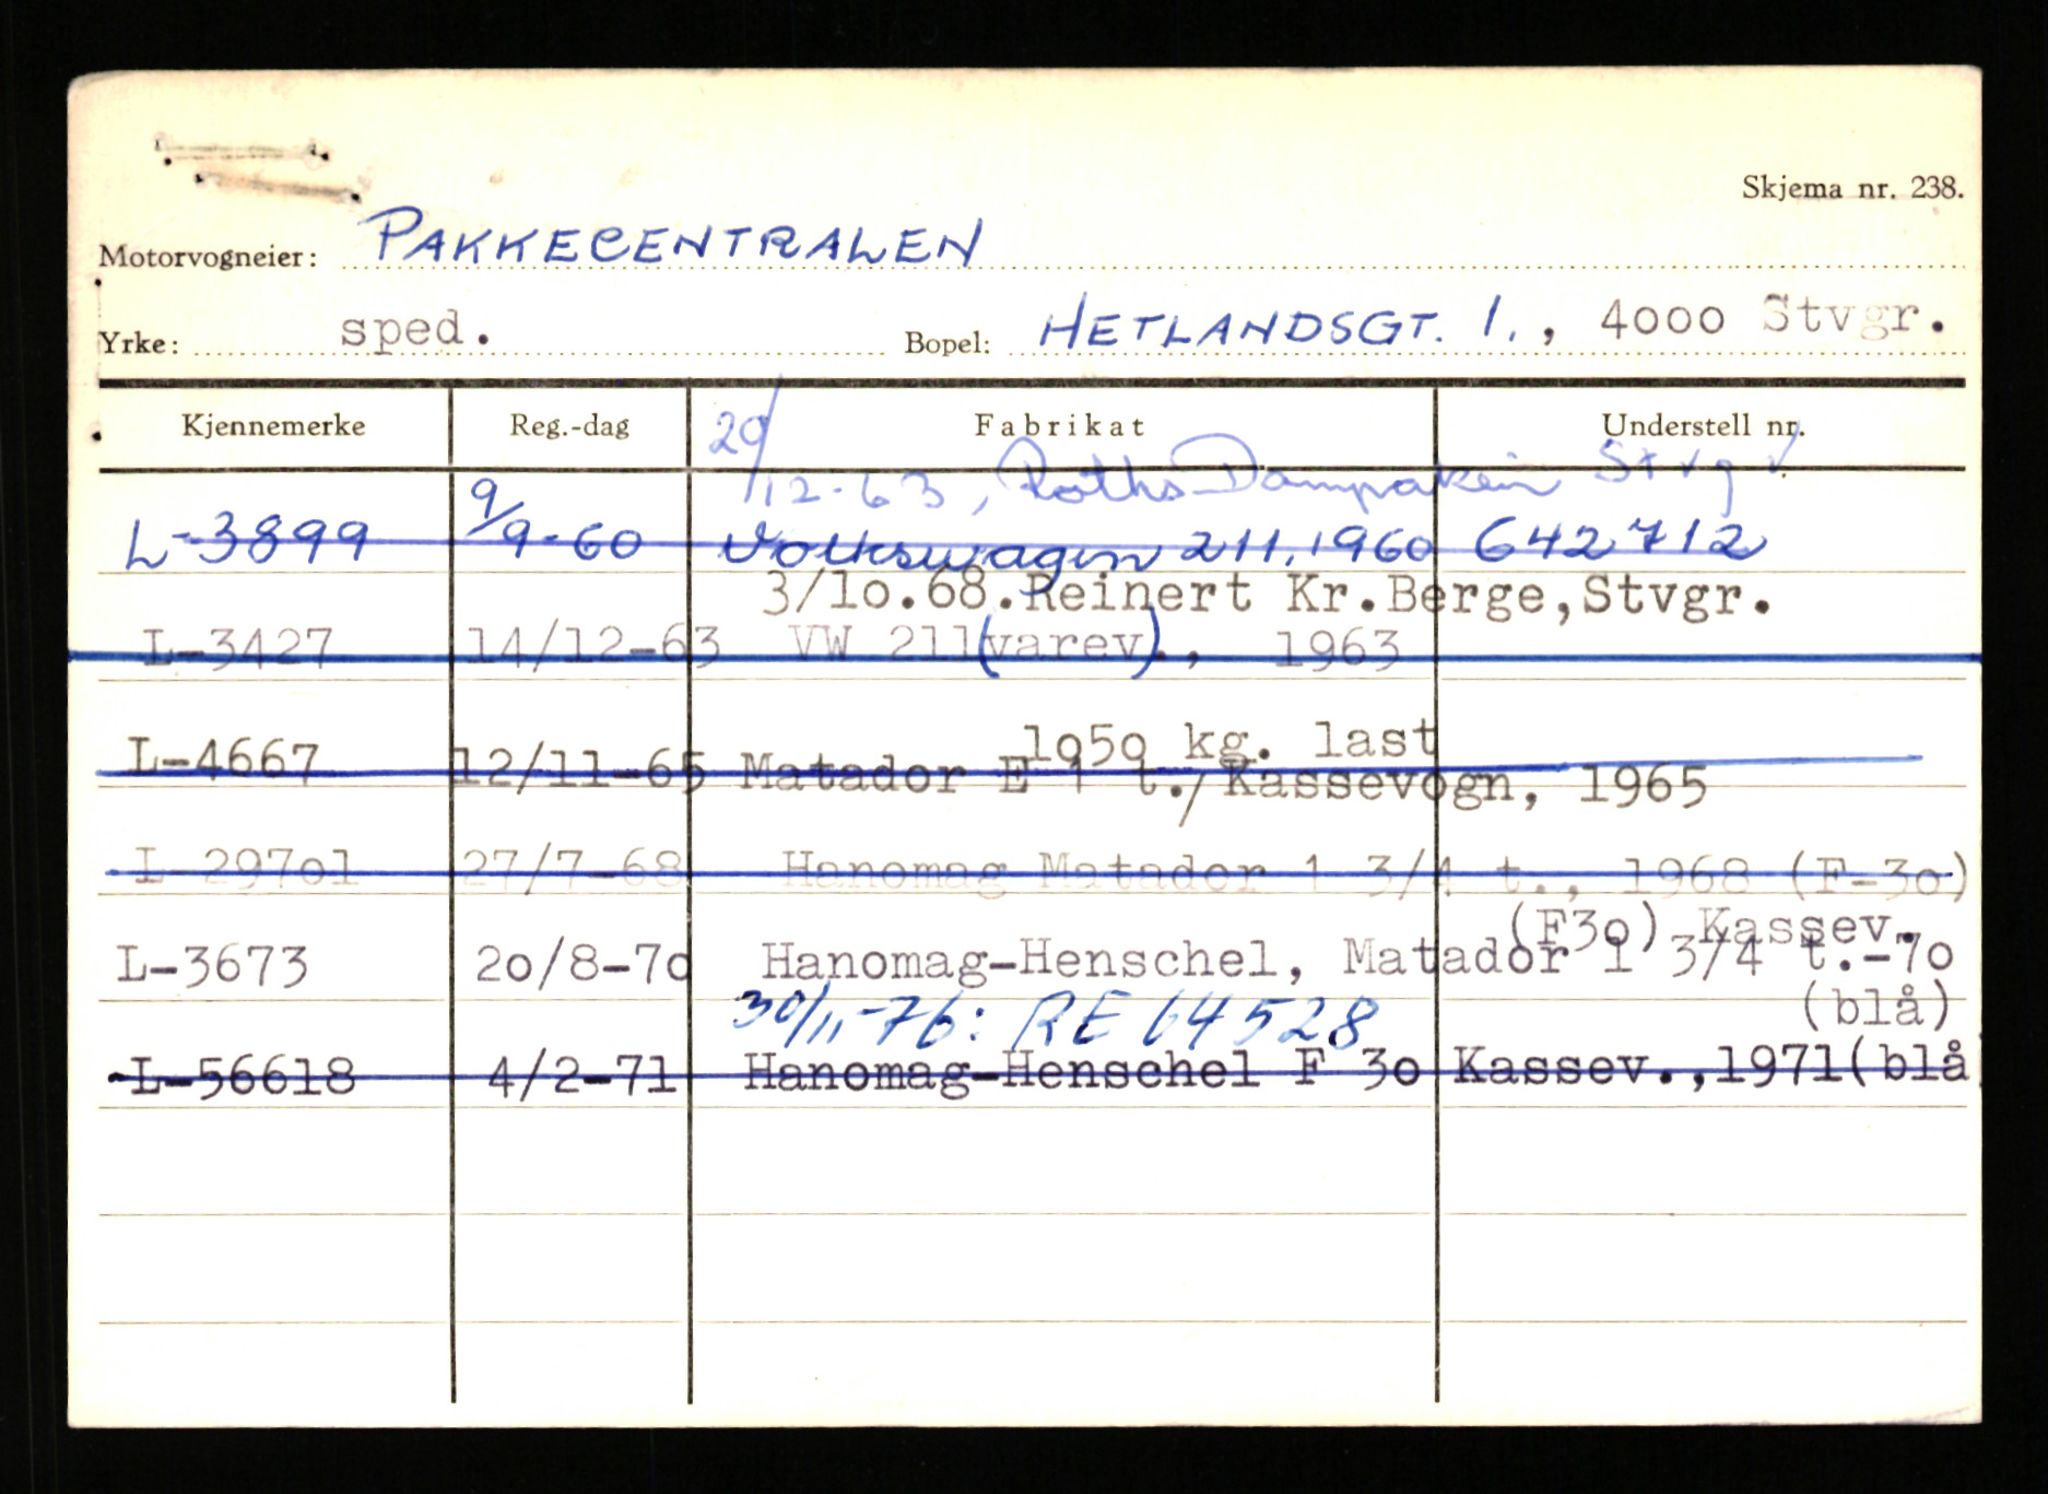 Skjema nr. 238.
Motorvogneier: PAKKECENTRALEN
Yrke: sped. Bopel: HETLANDSGT. 1., 4000 Stvgr.
Kjennemerke Reg.-dag Fabrikat Understell nr.
20/12-63, Roths Stvgr
L-3899 9/9-60 Volkswagen 211, 1960 642712
3/10.68.Reinert Kr.Berge,Stvgr.
L-3427 14/12-63 VW 211(varev)., 1963
1050 kg. last
L-4667 12/11-65 Matador E 1 t./Kassevogn, 1965
L-29701 27/7-68 Hanomag Matador 1 3/4 t., 1968 (F-30)
(F30) Kassev.
L-3673 20/8-70 Hanomag-Henschel, Matador 1 3/4 t.-70
(blå)
30/11-76: RE 64528
L-56618 4/2-71 Hanomag-Henschel F 30 Kassev.,1971(blå